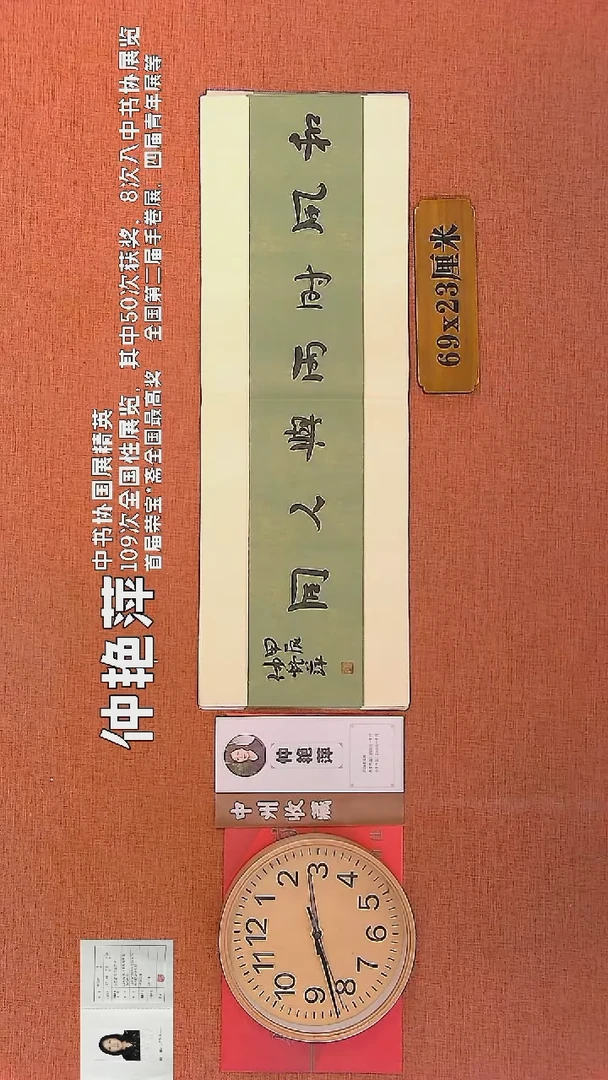 仲艳萍
中书协国展精英
109次全国性展览，其中50次获奖，8次入中书协展览
首届荣宝*斋全国最高奖 全国第二届手卷展，四届青年展等
和風时雨與人同
甲辰
仲艳萍
69x23厘米
仲艳萍
中州收藏
12
1
2
3
4
5
6
7
8
9
10
11